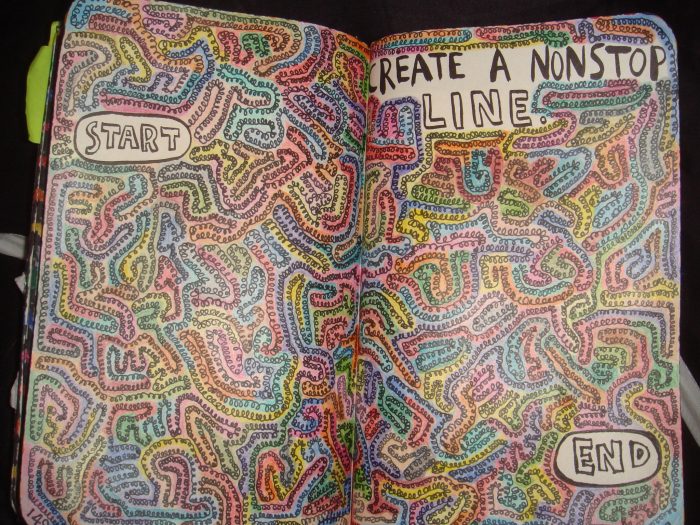 START
CREATE A NONSTOP
LINE.
END